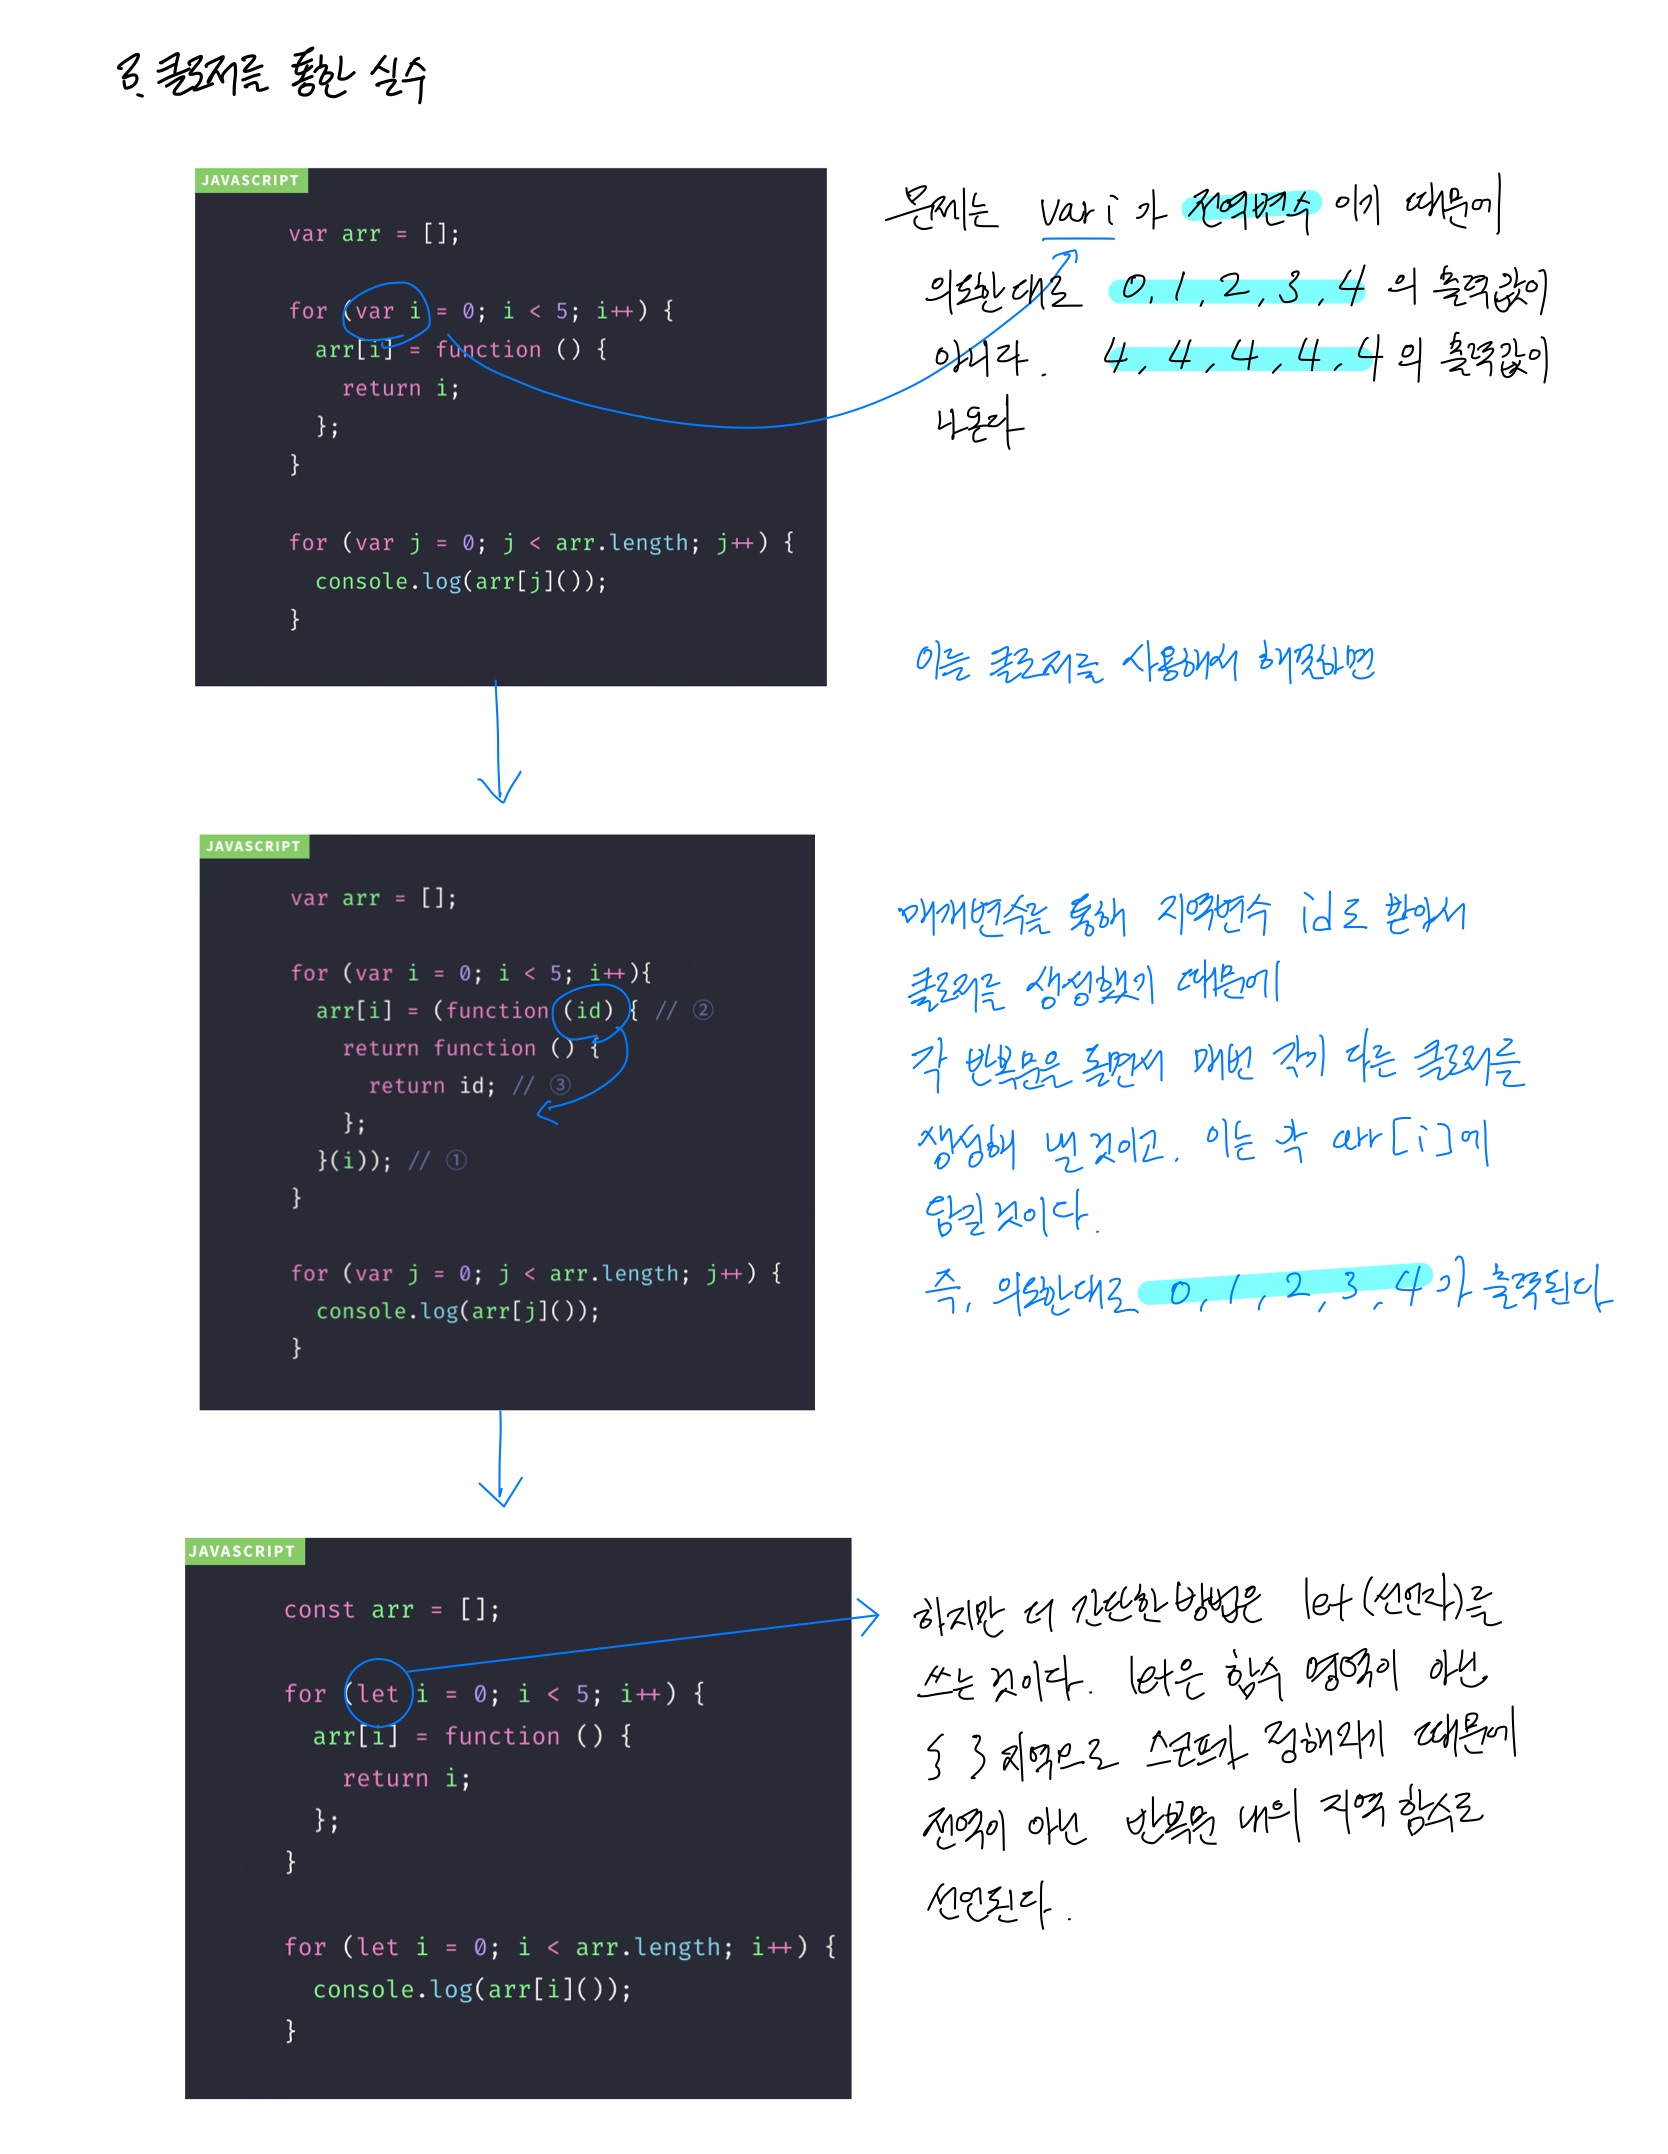 3. 클로저를 통한 실수
JAVASCRIPT
var arr = [];
for (var i = 0; i < 5; i++) {
arr[i] = function () {
return i;
};
}
for (var j = 0; j < arr.length; j++) {
console.log(arr[j]());
}
문제는 var i 가 전역변수 이기 때문에
의도한대로 0, 1, 2, 3, 4 의 출력값이
아니다. 4, 4, 4, 4, 4 의 출력값이
나온다
이를 클로저를 사용해서 해결하면
JAVASCRIPT
var arr = [];
for (var i = 0; i < 5; i++){
arr[i] = (function (id) { // ②
return function () {
return id; // ③
};
}(i)); // ①
}
for (var j = 0; j < arr.length; j++) {
console.log(arr[j]());
}
매개변수를 통해 지역변수 id로 받아서
클로저를 생성했기 때문에
각 반복문을 돌면서 매번 각기 다른 클로저를
생성해 낼 것이고. 이는 각 arr[i]에
담길 것이다.
즉, 의도한대로 0, 1, 2, 3, 4가 출력된다
JAVASCRIPT
const arr = [];
for (let i = 0; i < 5; i++) {
arr[i] = function () {
return i;
};
}
for (let i = 0; i < arr.length; i++) {
console.log(arr[i]());
}
하지만 더 간단한 방법은 let (선언자)를
쓰는 것이다. let은 함수 영역이 아닌
{ } 지역으로 스코프가 정해지기 때문에
전역이 아닌 반복문 내의 지역 함수로
선언된다.